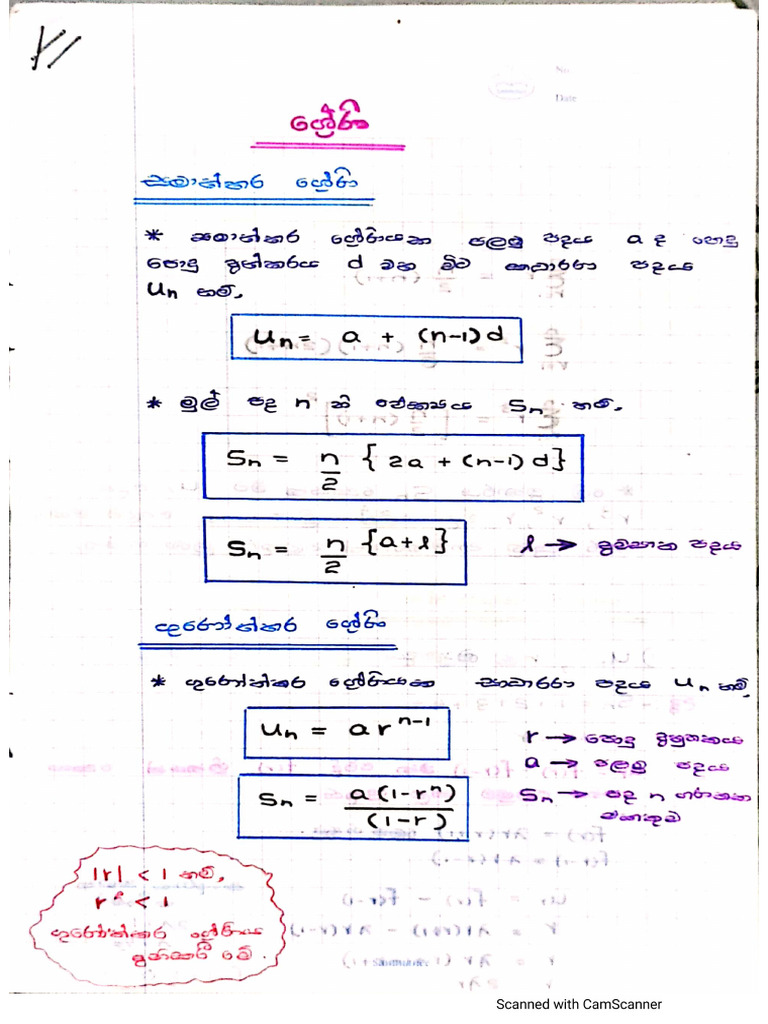 No.
Date
ශ්‍රේණි
සමාන්තර ශ්‍රේණි
* සමාන්තර ශ්‍රේණියක පලමු පදය a ද පොදු
පොදු අන්තරය d වන විට සාධාරණ පදය
Un නම්,
Un = a + (n-1) d
* මුල් පද n හි ඓක්‍යය Sn නම්,
Sn = n/2 { 2a + (n-1) d}
Sn = n/2 {a+l} l → අවසාන පදය
ගුණෝත්තර ශ්‍රේණි
* ගුණෝත්තර ශ්‍රේණියක සාධාරණ පදය Un නම්,
Un = a r^(n-1)
r → පොදු අනුපාතය
a → පලමු පදය
Sn = a(1-r^n)/(1-r)
Sn → පද n ගණනක
එකතුව
|r| < 1 නම්,
r² < 1
ගුණෝත්තර ශ්‍රේණිය
අභිසාරී වේ.
Scanned with CamScanner